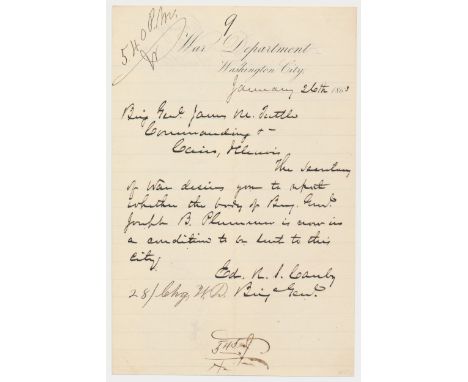 9
5 40 P.M.
War Department
Washington City,
January 26th 1863
Brig Genl James M. Tuttle
Commanding &c
Cairo, Illinois
The Secretary
of War desires you to report
whether the body of Brig. Genl.
Joseph B. Plummer is now in
a condition to be sent to this
City.
Ed. R. S. Canby
28/Chg, W.D. Brig Genl.
545